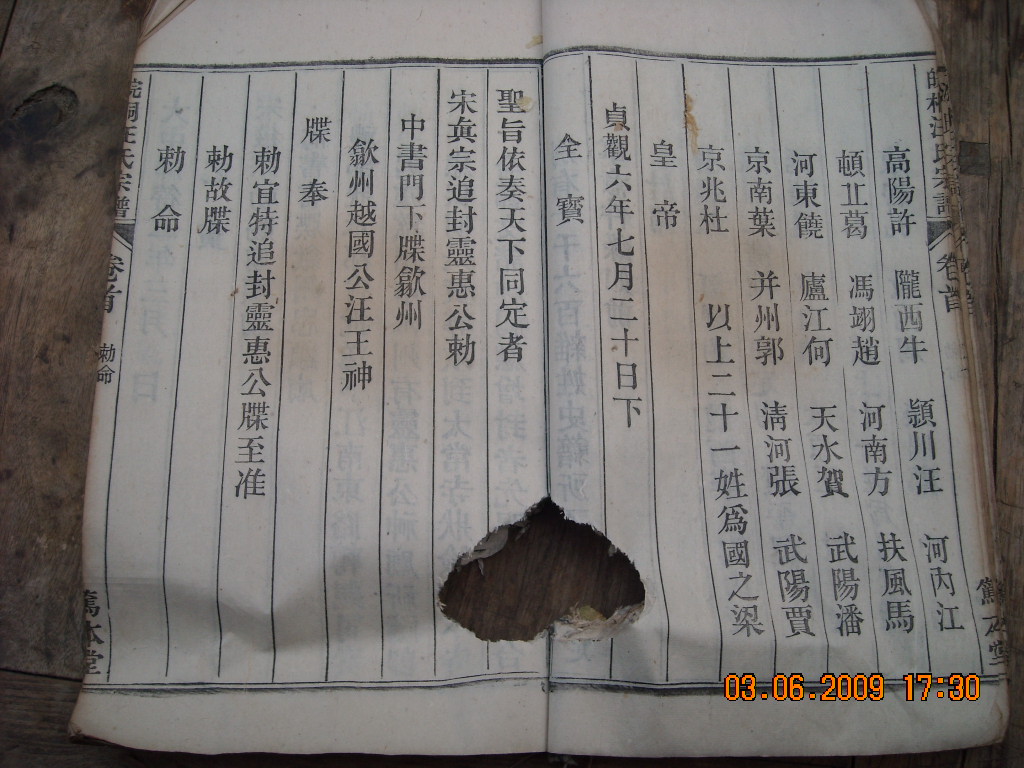 高陽許 隴西牛 潁川汪 河內江
頓㐀葛 馮翊趙 河南方 扶風馬
河東饒 廬江何 天水賀 武陽潘
京南葉 并州郭 淸河張 武陽賈
京兆杜 以上二十一姓爲國之梁
皇帝
貞觀六年七月二十日下
全寶
聖旨依奏天下同定者
宋眞宗追封靈惠公勅
中書門下牒歙州
歙州越國公汪王神
牒奉
勅宜特追封靈惠公牒至准
勅故牒
勅命
汪氏宗譜
卷首
勅命
篤本堂
03.06.2009 17:30